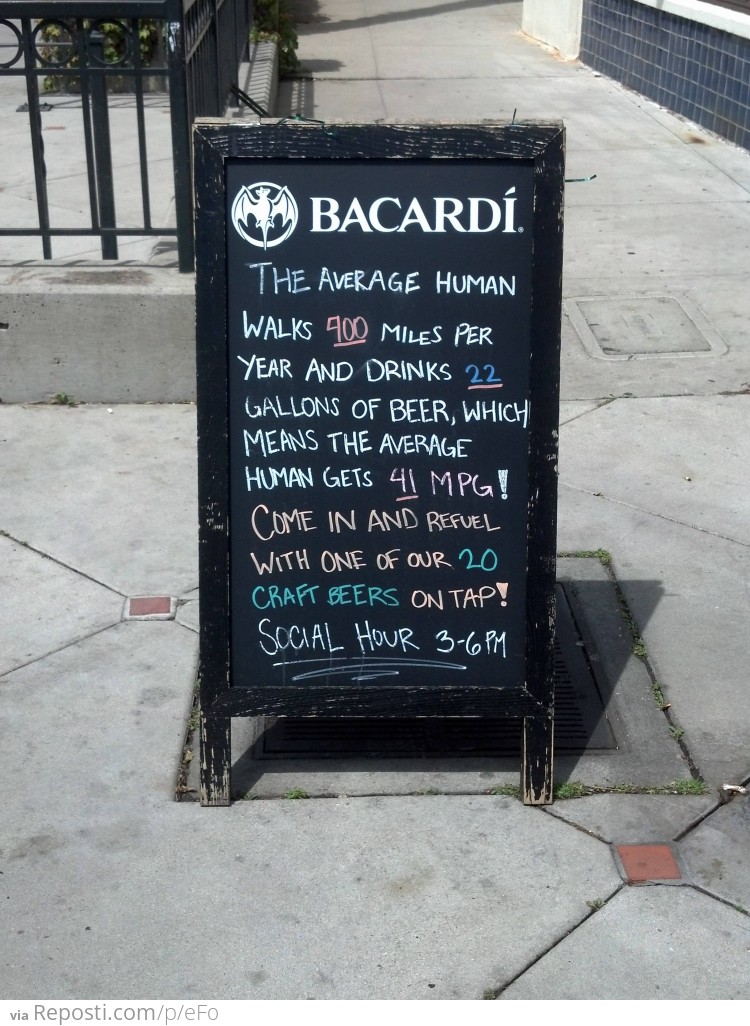 BACARDÍ®
THE AVERAGE HUMAN
WALKS 900 MILES PER
YEAR AND DRINKS 22
GALLONS OF BEER, WHICH
MEANS THE AVERAGE
HUMAN GETS 41 MPG!
COME IN AND REFUEL
WITH ONE OF OUR 20
CRAFT BEERS ON TAP!
SOCIAL HOUR 3-6 PM
via Reposti.com/p/eFo